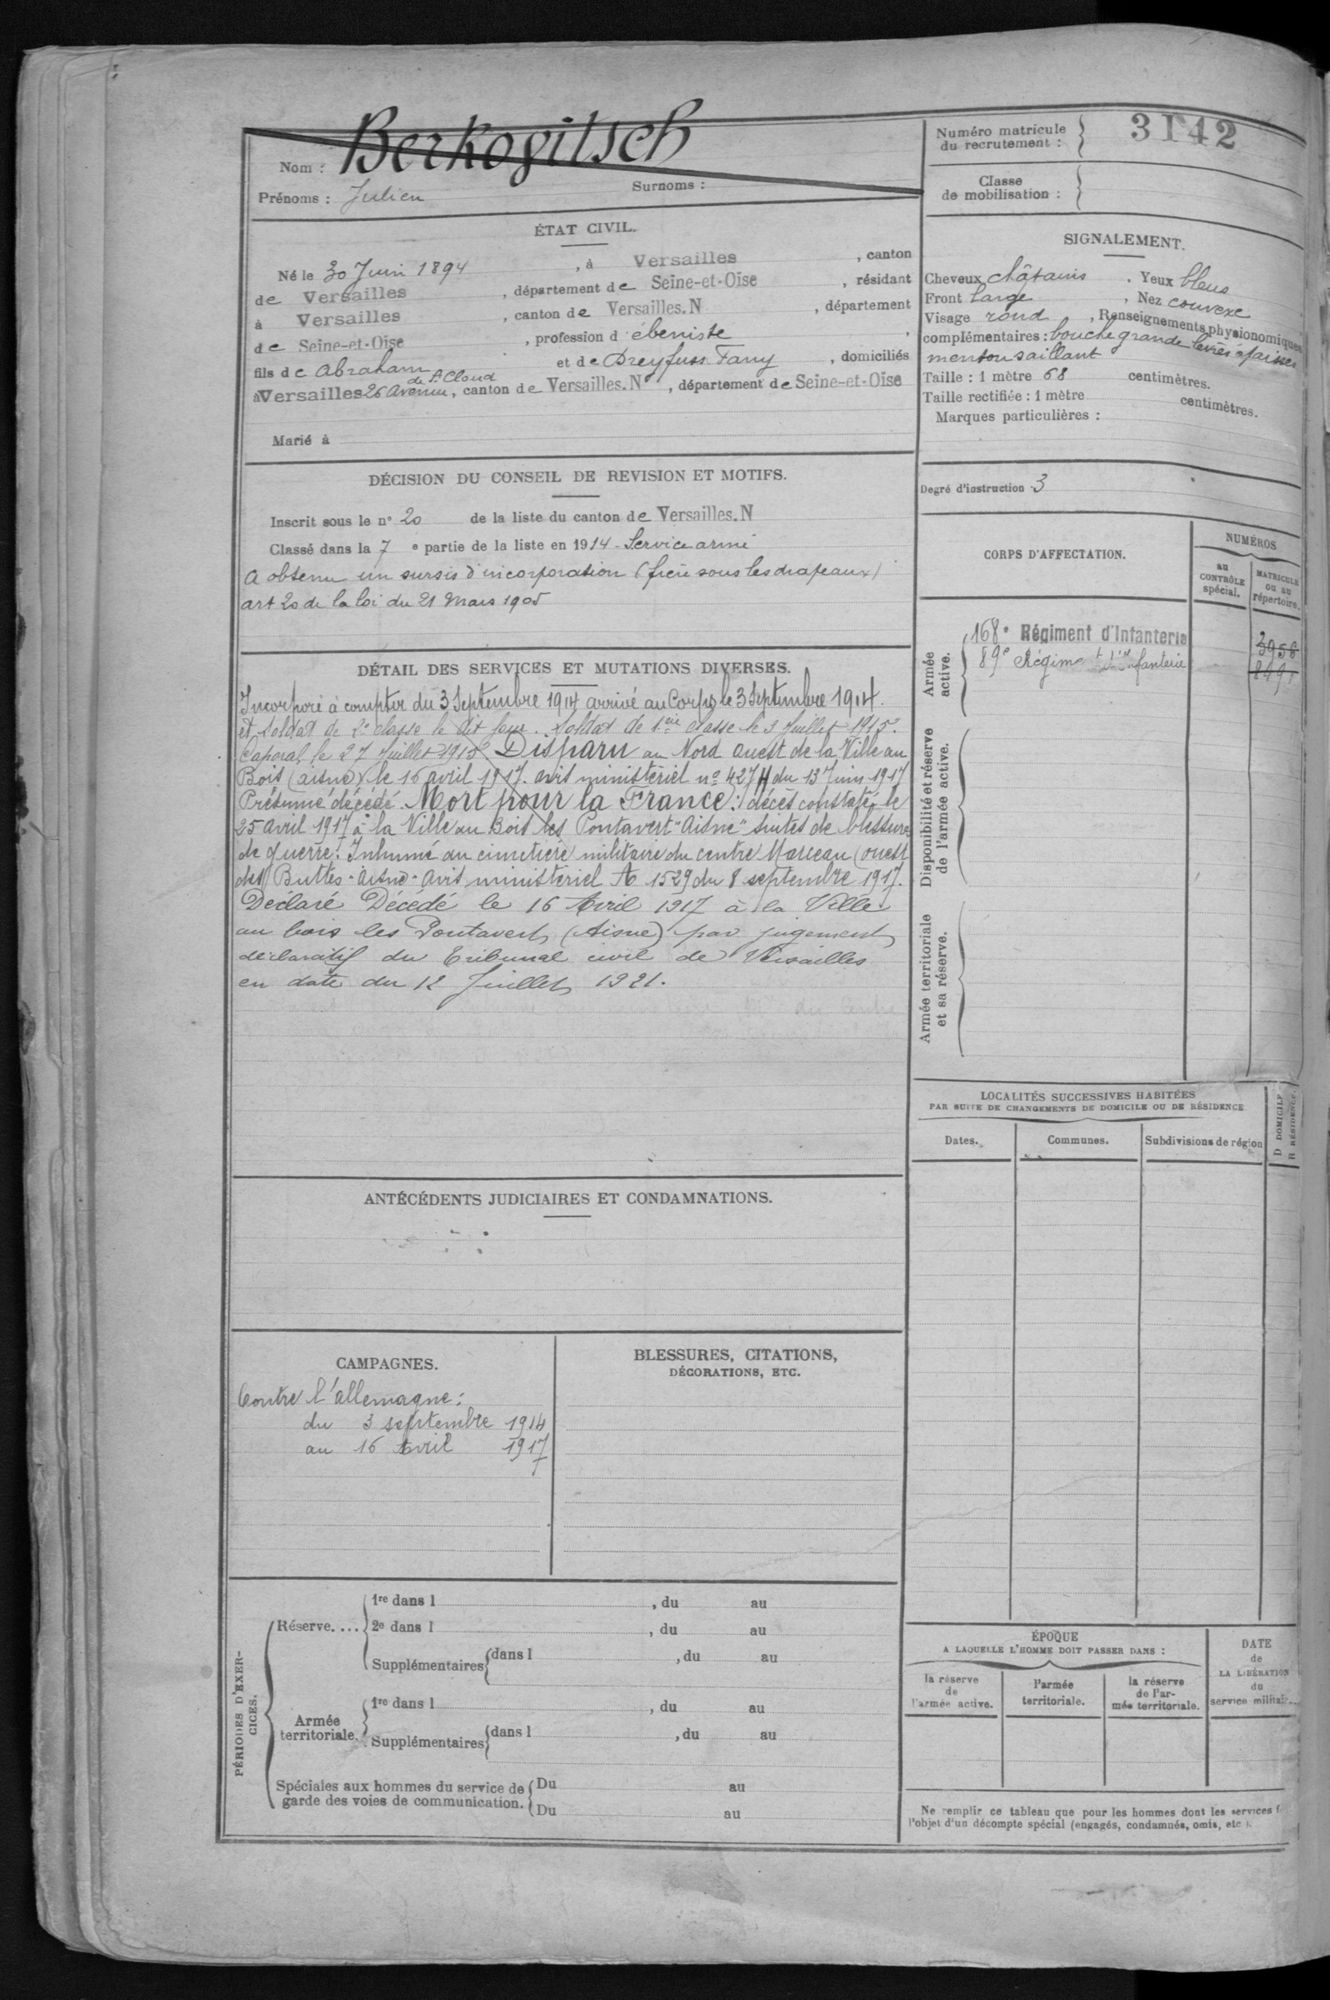 Nom : Berkogitsch
Prénoms : Julien Surnoms :
Numéro matricule du recrutement : 3142
Classe de mobilisation :
ÉTAT CIVIL.
Né le 30 Juin 1894, à Versailles, canton
de Versailles, département de Seine-et-Oise, résidant
à Versailles, canton de Versailles.N, département
de Seine-et-Oise, profession d'ébeniste,
fils de Abraham et de Dreyfuss Fany, domiciliés
à Versailles 26 Avenue de St Cloud, canton de Versailles.N, département de Seine-et-Oise
Marié à
SIGNALEMENT.
Cheveux châtains. Yeux bleus
Front large, Nez convexe
Visage rond, Renseignements physionomiques
complémentaires : bouche grande levres épaisses
menton saillant
Taille : 1 mètre 68 centimètres.
Taille rectifiée : 1 mètre centimètres.
Marques particulières :
Degré d'instruction 3
DÉCISION DU CONSEIL DE REVISION ET MOTIFS.
Inscrit sous le n° 20 de la liste du canton de Versailles.N
Classé dans la 7e partie de la liste en 1914 - Service armé
A obtenu un sursis d'incorporation (frère sous les drapeaux)
art 20 de la loi du 21 Mars 1905
DÉTAIL DES SERVICES ET MUTATIONS DIVERSES.
Incorporé à compter du 3 Septembre 1914 arrivé au Corps le 3 Septembre 1914.
et soldat de 2e classe le dit jour. Soldat de 1ère classe le 3 Juillet 1915.
Caporal le 27 Juillet 1915 Disparu au Nord ouest de la Ville au
Bois (aisne) le 16 avril 1917. avis ministèriel n° 4274 du 13 Juin 1917
Présumé décédé. Mort pour la France : décès constaté le
25 avril 1917 à la Ville au Bois les Pontavert "Aisne" suites de blessures
de guerre. Inhumé au cimetière militaire du centre Marceau (ouest
des Buttes - Aisne - Avis ministèriel A 1529 du 8 septembre 1917.
Déclaré Décédé le 16 Avril 1917 à la Ville
au bois les Pontavert (Aisne) par jugement
déclaratif du Tribunal civil de Versailles
en date du 12 Juillet 1921.
CORPS D'AFFECTATION.
NUMÉROS
au CONTRÔLE spécial.
MATRICULE ou au répertoire.
Armée active.
168e Régiment d'Infanterie 3958
89e Régiment d'Infanterie
Disponibilité et réserve de l'armée active.
Armée territoriale et sa réserve.
LOCALITÉS SUCCESSIVES HABITÉES
PAR SUITE DE CHANGEMENTS DE DOMICILE OU DE RÉSIDENCE
Dates. Communes. Subdivisions de région
D DOMICILE.
R RÉSIDENCE.
ANTÉCÉDENTS JUDICIAIRES ET CONDAMNATIONS.
CAMPAGNES.
Contre l'allemagne :
du 3 septembre 1914
au 16 avril 1917
BLESSURES, CITATIONS,
DÉCORATIONS, ETC.
PÉRIODES D'EXERCICES.
Réserve....
1re dans l , du au
2e dans l , du au
Supplémentaires dans l , du au
Armée territoriale.
1re dans l , du au
Supplémentaires dans l , du au
Spéciales aux hommes du service de garde des voies de communication.
Du au
Du au
ÉPOQUE
A LAQUELLE L'HOMME DOIT PASSER DANS :
la réserve de l'armée active.
l'armée territoriale.
la réserve de l'armée territoriale.
DATE de LA LIBÉRATION du service militair
Ne remplir ce tableau que pour les hommes dont les services f
l'objet d'un décompte spécial (engagés, condamnés, omis, etc ).